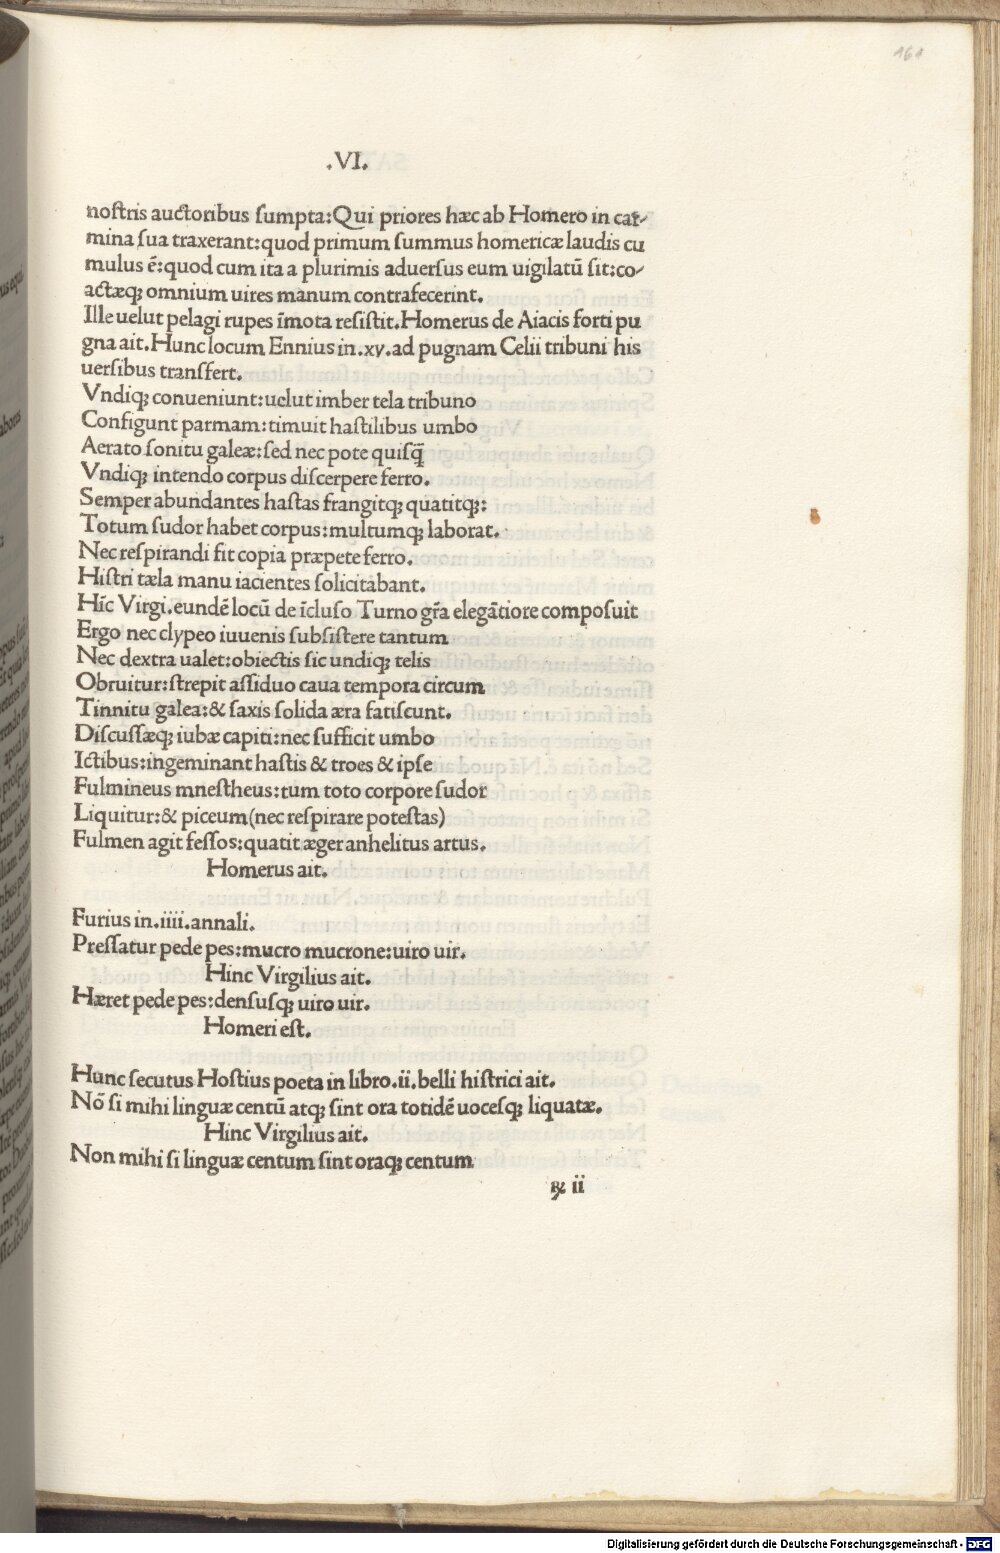 161
.VI.
noſtris auctoribus ſumpta:Qui priores hæc ab Homero in car⸗
mina ſua traxerant:quod primum ſummus homericæ laudis cu
mulus ē:quod cum ita a plurimis aduerſus eum uigilatū ſit:co⸗
actæq; omnium uires manum contrafecerint.
Ille uelut pelagi rupes īmota reſiſtit.Homerus de Aiacis forti pu
gna ait.Hunc locum Ennius in.xv.ad pugnam Celii tribuni his
uerſibus tranſfert.
Vndiq; conueniunt:uelut imber tela tribuno
Configunt parmam:timuit haſtilibus umbo
Aerato ſonitu galeæ:ſed nec pote quiſq̄
Vndiq; intendo corpus diſcerpere ferro.
Semper abundantes haſtas frangitq; quatitq;:
Totum ſudor habet corpus:multumq; laborat.
Nec reſpirandi fit copia præpete ferro.
Hiſtri tæla manu iacientes ſolicitabant.
Hīc Virgi.eundē locū de īcluſo Turno gr̄a elegātiore compoſuit
Ergo nec clypeo iuuenis ſubſiſtere tantum
Nec dextra ualet:obiectis ſic undiq; telis
Obruitur:ſtrepit aſſiduo caua tempora circum
Tinnitu galea:& ſaxis ſolida æra fatiſcunt.
Diſcuſſæq; iubæ capiti:nec ſufficit umbo
Ictibus:ingeminant haſtis & troes & ipſe
Fulmineus mneſtheus:tum toto corpore ſudor
Liquitur:& piceum(nec reſpirare poteſtas)
Fulmen agit feſſos:quatit æger anhelitus artus.
Homerus ait.
Furius in.iiii.annali.
Preſſatur pede pes:mucro mucrone:uiro uir.
Hinc Virgilius ait.
Hæret pede pes:denſuſq; uiro uir.
Homeri eſt.
Hunc ſecutus Hoſtius poeta in libro.ii.belli hiſtrici ait.
Nō ſi mihi linguæ centū atq; ſint ora totidē uoceſq; liquatæ.
Hinc Virgilius ait.
Non mihi ſi linguæ centum ſint oraq; centum
ꝶ ii
Digitalisierung gefördert durch die Deutsche Forschungsgemeinschaft - DFG